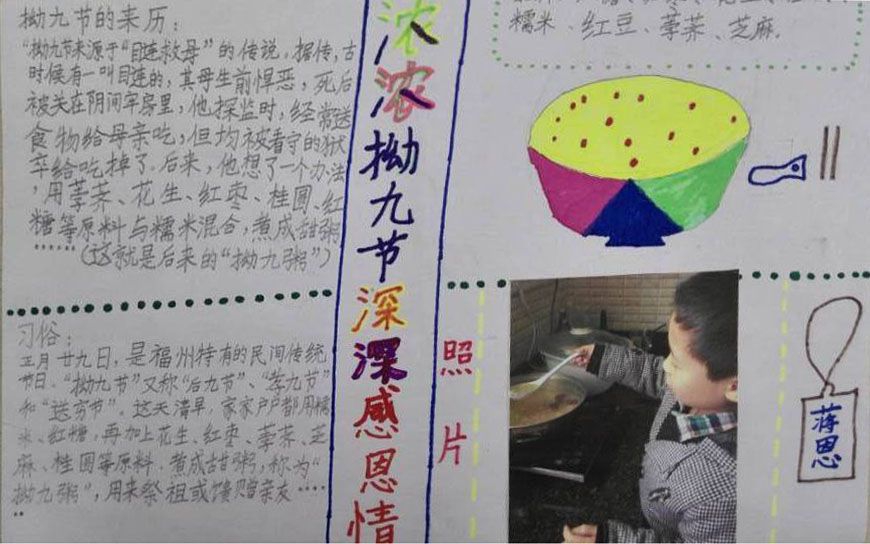 拗九节的来历：
“拗九节来源于“目连救母”的传说，据传，古
时候有一叫目连的，其母生前悍恶，死后
被关在阴间牢房里，他探监时，经常送
食物给母亲吃，但均被看守的狱
卒给吃掉了.后来，他想了一个办法
，用荸荠、花生、红枣、桂圆、红
糖等原料与糯米混合，煮成甜粥
······（这就是后来的“拗九粥”）
习俗：
正月廿九日，是福州特有的民间传统
节日.“拗九节”又称“后九节”、“孝九节”
和“送穷节”.这天清早，家家户户都用糯
米、红糖，再加上花生、红枣、荸荠、芝
麻、桂圆等原料.煮成甜粥，称为“
拗九粥”，用来祭祖或馈赠亲友······
浓浓拗九节深深感恩情
糯米、红豆、荸荠、芝麻.
照片
蒋恩